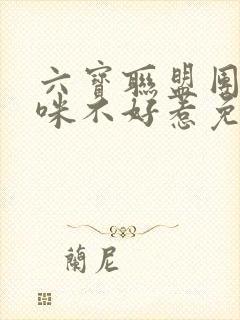 六寶聯盟團
咪不好惹免
蘭尼